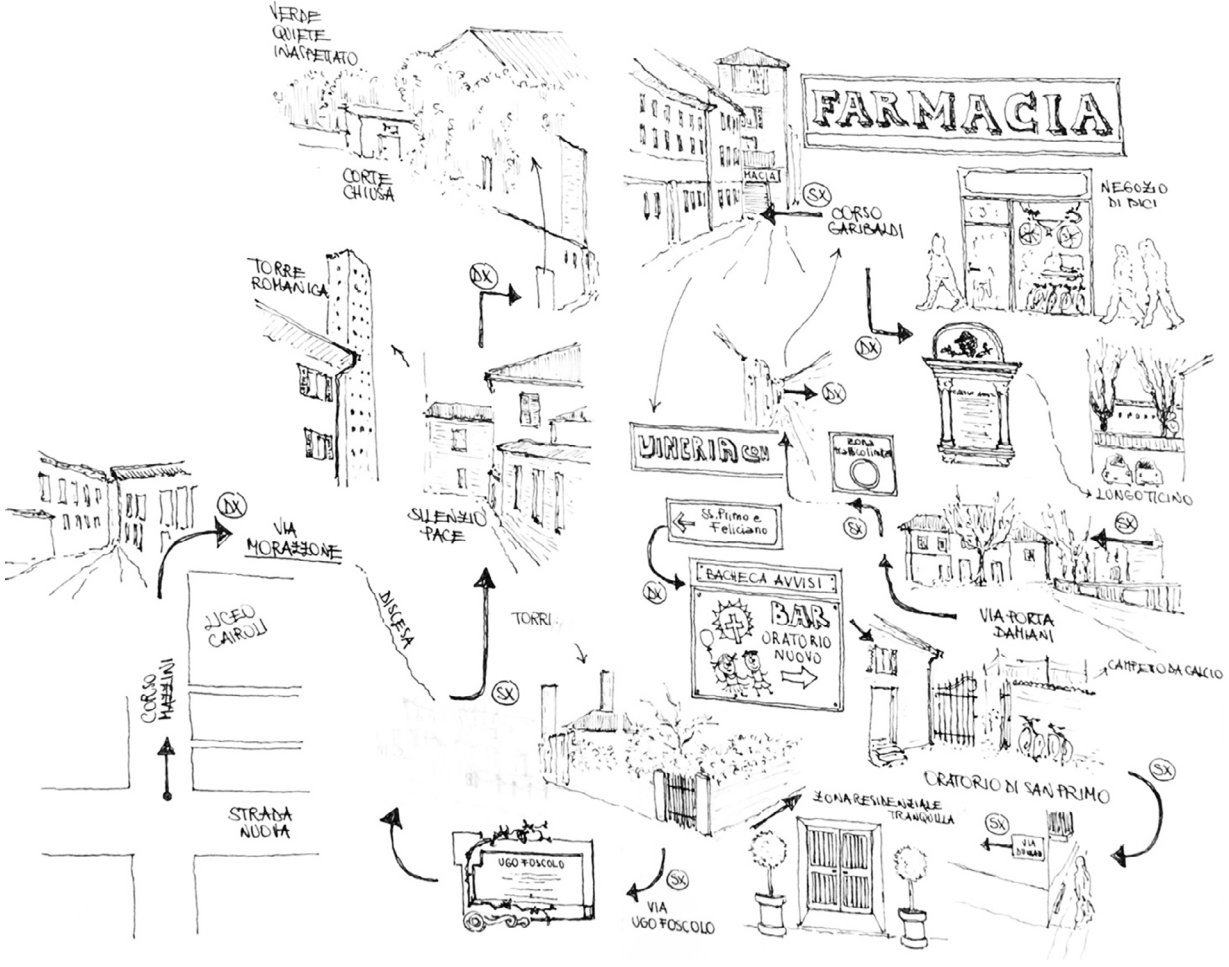 VERDE
QUIETE
INASPETTATO
CORTE
CHIUSA
TORRE
ROMANICA
DX
SILENZIO
PACE
DX
VIA
MORAZZONE
LICEO
CAIROLI
CORSO
MAZZINI
STRADA
NUOVA
DISCESA
SX
TORRI
UGO FOSCOLO
SX
VIA
UGO FOSCOLO
FARMACIA
MACIA
SX
CORSO
GARIBALDI
NEGOZIO
DI BICI
DX
DX
VINERIA COM
ZONA
SS. Primo e
Feliciano
DX
BACHECA AVVISI
BAR
ORATORIO
NUOVO
SX
LUNGOTICINO
SX
VIA PORTA
DAMIANI
CAMPETTO DA CALCIO
ORATORIO DI SAN PRIMO
SX
ZONA RESIDENZIALE
TRANQUILLA
SX
VIA